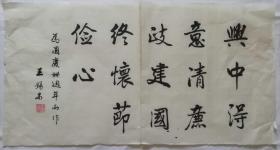 興中得
意清廉
政建國
終懷節
儉心
為國慶卌週年而作
王